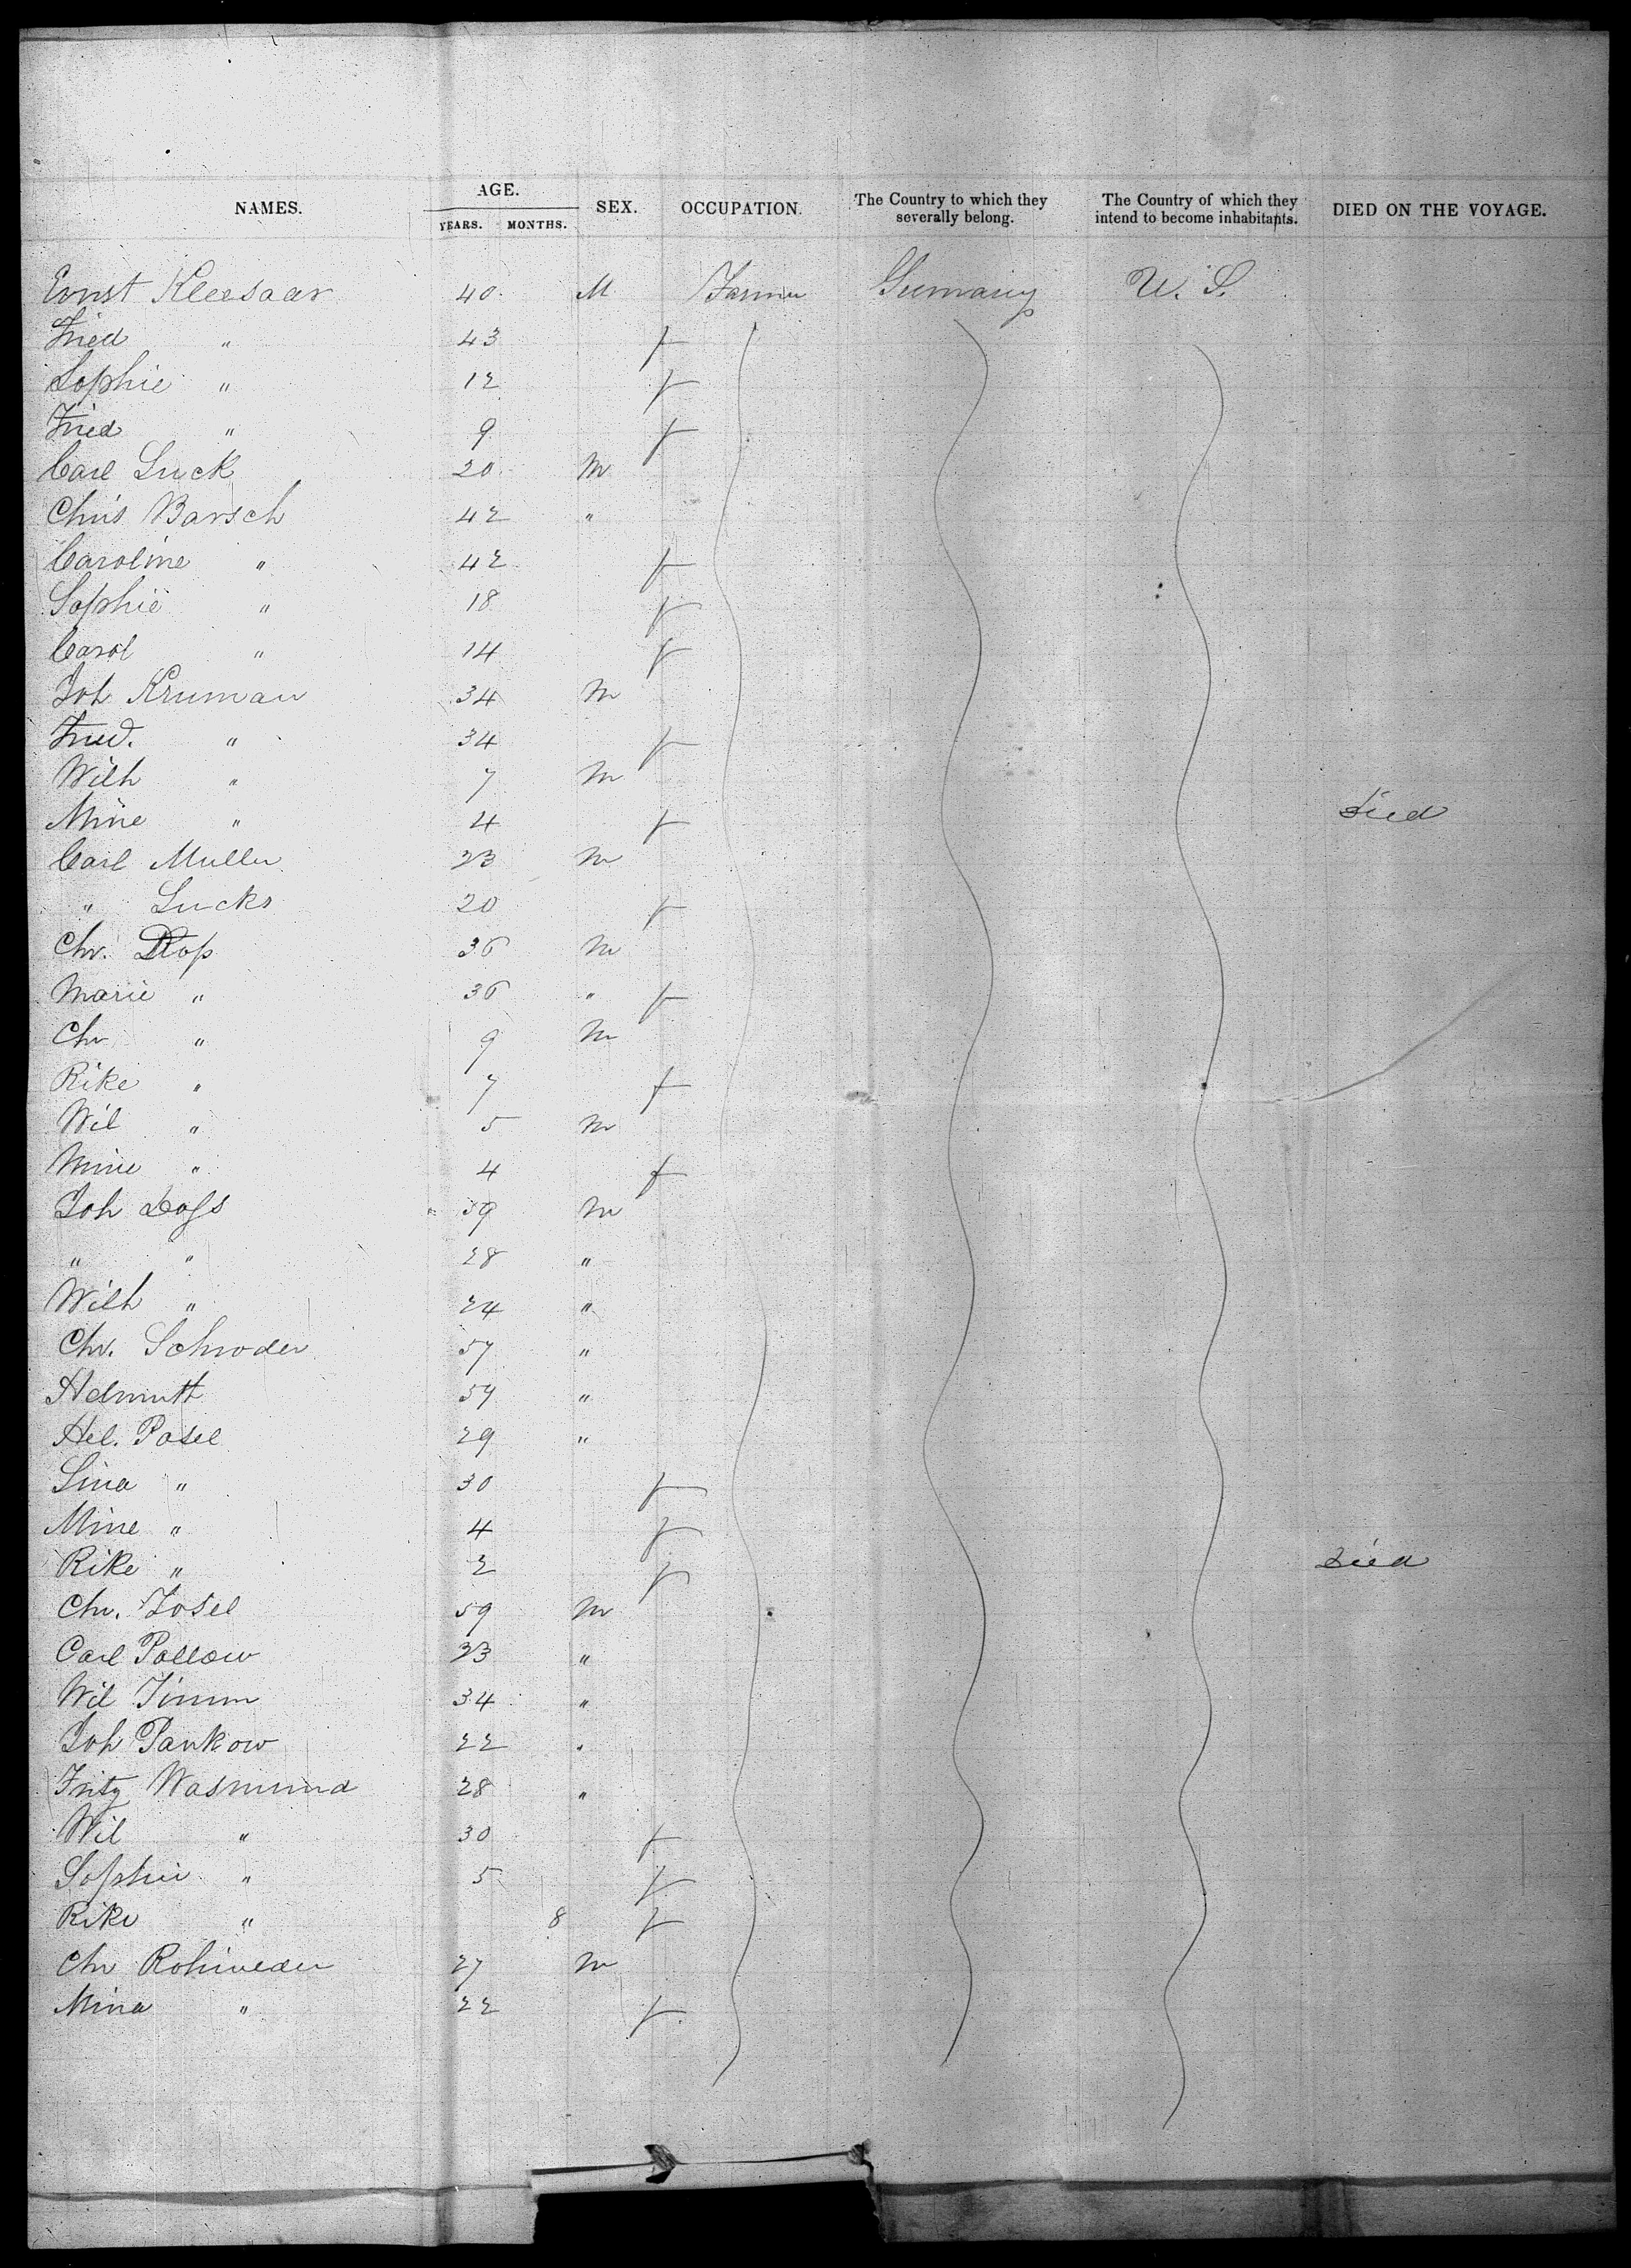 NAMES. AGE. YEARS. MONTHS. SEX. OCCUPATION. The Country to which they severally belong. The Country of which they intend to become inhabitants. DIED ON THE VOYAGE.
Ernst Kleesaar 40 M Farmer Germany U. S.
Fried " 43 f
Sophie " 12 f
Fried " 9 f
Carl Luck 20 M
Chris Barsch 42 "
Caroline " 42 f
Sophie " 18 f
Carol " 14 f
Joh Kruman 34 M
Fried. " 34 f
Wilh " 7 M
Mine " 4 f Died
Carl Muller 23 M
" Lucks 20 f
Chr. 36 M
Marie " 36 " f
Chr " 9 M
Rike " 7 f
Wil " 5 M
Mine " 4 f
Joh 39 M
" " 28 "
Wilh " 24 "
Chr. Schroder 57 "
Helmuth 54 "
Hel. Pasel 29 "
Lina " 30 f
Mine " 4 f
Rike " 2 f Died
Chr. Josel 59 M
Carl Pallow 23 "
Wil Timm 34 "
Joh Pankow 22 "
Fritz Wasmund 28 "
Wil " 30 f
Sophie " 5 f
Rike " 8 f
Chr Rohweder 27 M
Mina " 22 f